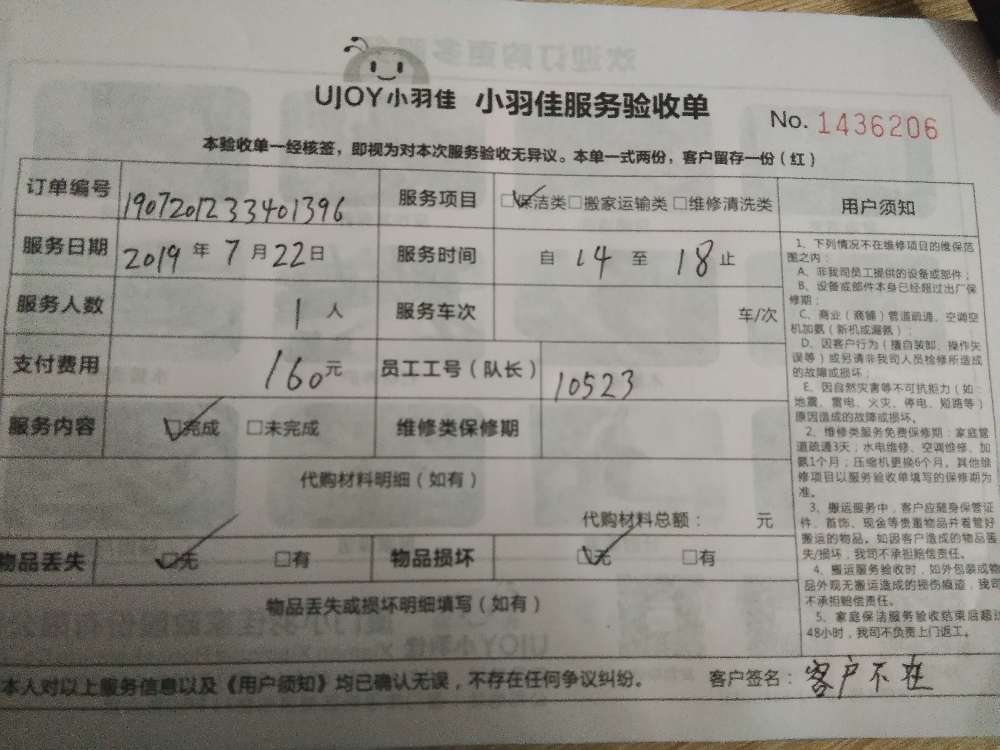 UJOY小羽佳 小羽佳服务验收单
No. 1436206
本验收单一经核签，即视为对本次服务验收无异议。本单一式两份，客户留存一份（红）
订单编号 1907201233401396 服务项目 ☑保洁类 □搬家运输类 □维修清洗类
服务日期 2019 年 7 月 22 日 服务时间 自 14 至 18 止
服务人数 1 人 服务车次 车/次
支付费用 160 元 员工工号（队长） 10523
服务内容 ☑完成 □未完成 维修类保修期
代购材料明细（如有）
代购材料总额： 元
物品丢失 ☑无 □有 物品损坏 ☑无 □有
物品丢失或损坏明细填写（如有）
用户须知
1、下列情况不在维修项目的维保范
围之内：
A、非我司员工提供的设备或部件；
B、设备或部件本身已经超过出厂保
修期；
C、商业（商铺）管道疏通、空调空
机加氨（新机或漏氨）；
D、因客户行为（擅自装卸、操作失
误等）或另请非我司人员检修所造成
的故障或损坏；
E、因自然灾害等不可抗拒力（如：
地震、雷电、火灾、停电、短路等）
原因造成的故障或损坏。
2、维修类服务免费保修期：家庭管
道疏通3天；水电维修、空调维修、加
氨1个月；压缩机更换6个月。其他维
修项目以服务验收单填写的保修期为
准。
3、搬运服务中，客户应随身保管证
件、首饰、现金等贵重物品并看管好
搬运的物品。如因客户造成的物品丢
失/损坏，我司不承担赔偿责任。
4、搬运服务验收时，如外包装或物
品外观无搬运造成的损伤痕迹，我司
不承担赔偿责任。
5、家庭保洁服务验收结束后超过
48小时，我司不负责上门返工。
本人对以上服务信息以及《用户须知》均已确认无误，不存在任何争议纠纷。 客户签名：客户不在